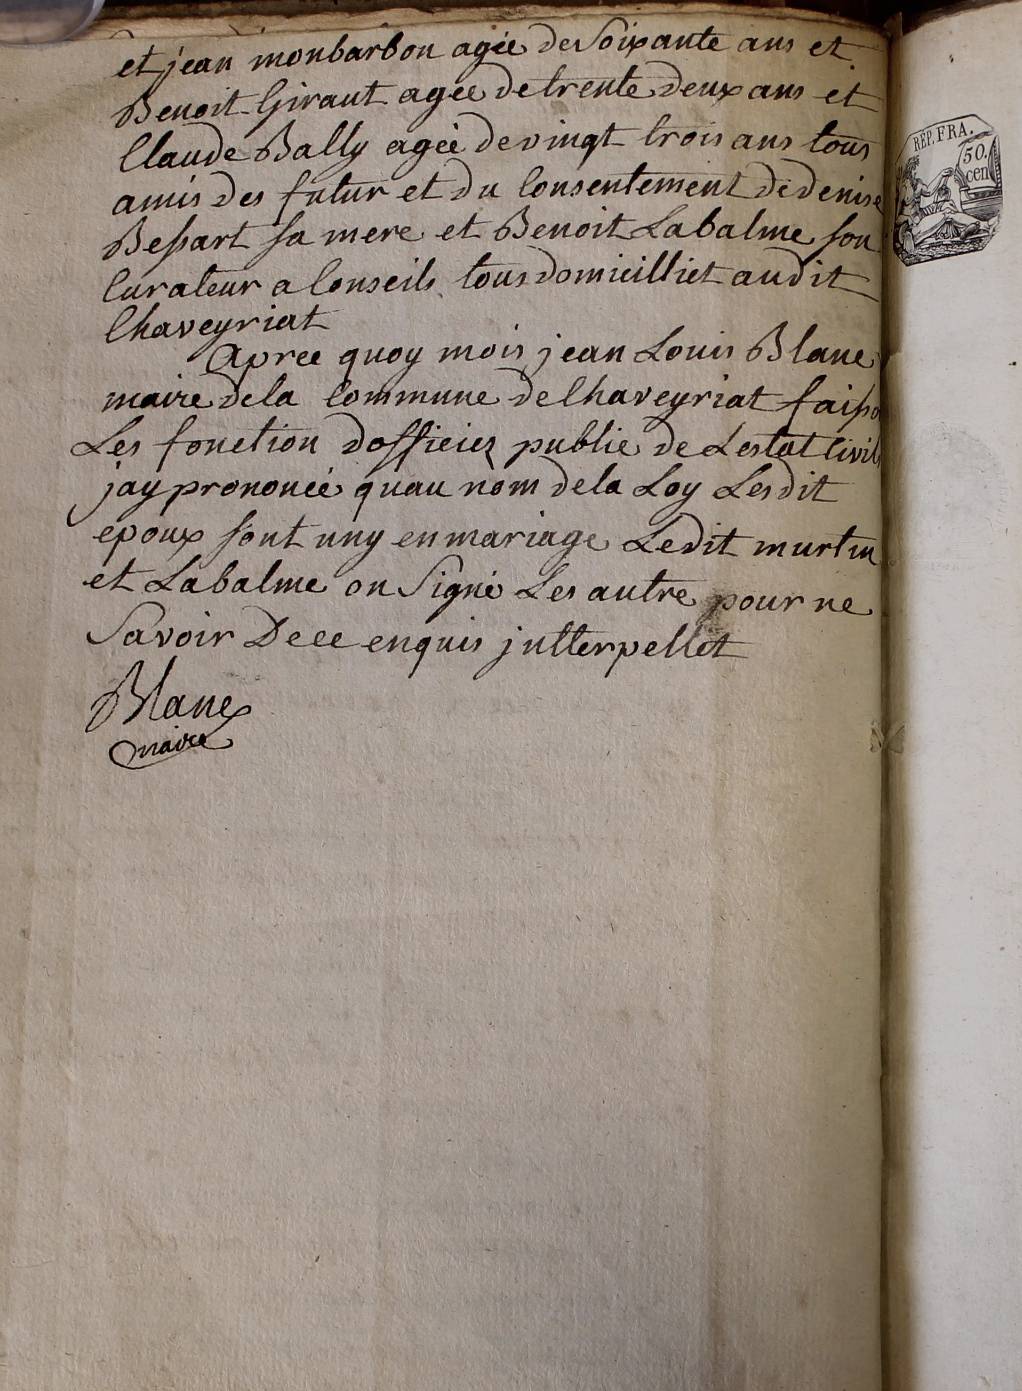 et jean monbarbon agée de Soixante ans et
Benoit Giraut agée de trente deux ans et
Claude Bally agéé de vingt trois ans tous
amis des futur et du Consentement de denise
Bessart sa mere et Benoit Labalme son
Curateur a Conseils tous domicilliet audit
Chaveyriat
apree quoy mois jean Louis Blanc
maire dela Commune de Chaveyriat faiss
Les fonction dofficier public de Lestat Civil
jay prononcéé quau nom dela Loy Lesdit
epoux sont uny en mariage Ledit murtin
et Labalme on Signé Les autre pour ne
Savoir De ce enquis jntterpellet
Blanc
maire
RÉP. FRA.
50.
cen